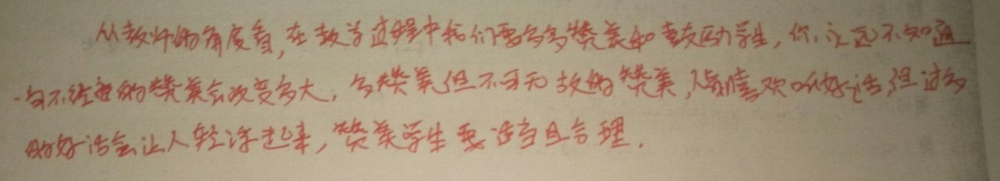 从教师的角度看,在教学过程中我们要多多赞美和鼓励学生,你永远不知道
一句不经意的赞美会改变多大,多赞美但不可无故的赞美,人都喜欢听好话,但过多
的好话会让人轻浮起来,赞美学生要适当且合理.